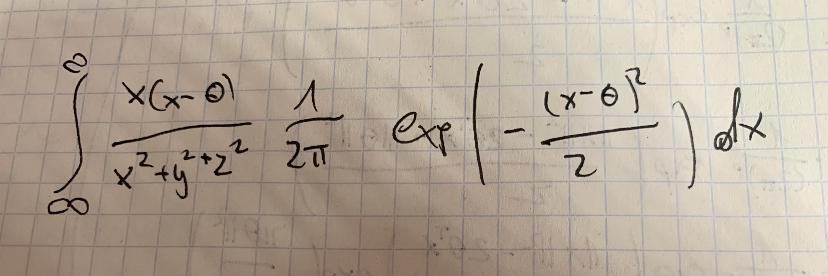 ∫_∞^∞ x(x-θ)/(x²+y²+z²) 1/2π exp(-(x-θ)²/2) dx